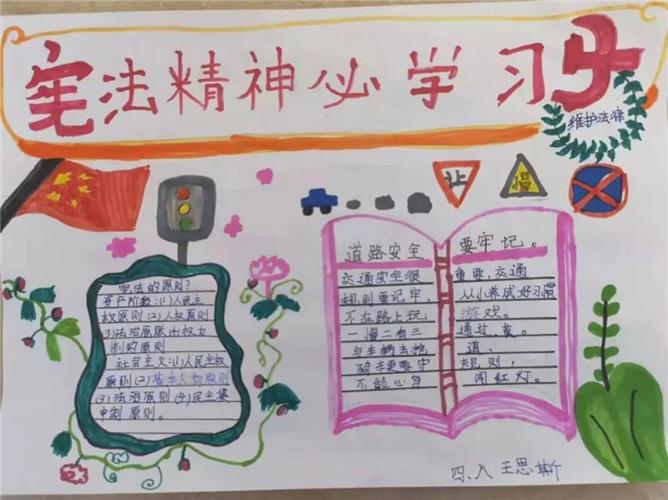 宪法精神必学习
维护法律
让
慢
宪法的原则?
资产阶级:(1)人民主
权原则(2)人权原则
(3)法治原则(4)权力
制约原则
社会主义:(1)人民主权
原则(2)基本人权原则
(3)法治原则(4)民主集
中制原则。
道路安全
交通安全很
规则要记牢,
不在路上玩
一慢二看三
与车辆去抢
骑车更要守
不能心
要牢记。
重要,交通
从小养成好习惯
游戏。
通过,莫
道、
规则,
闯红灯。
四、八 王思斯